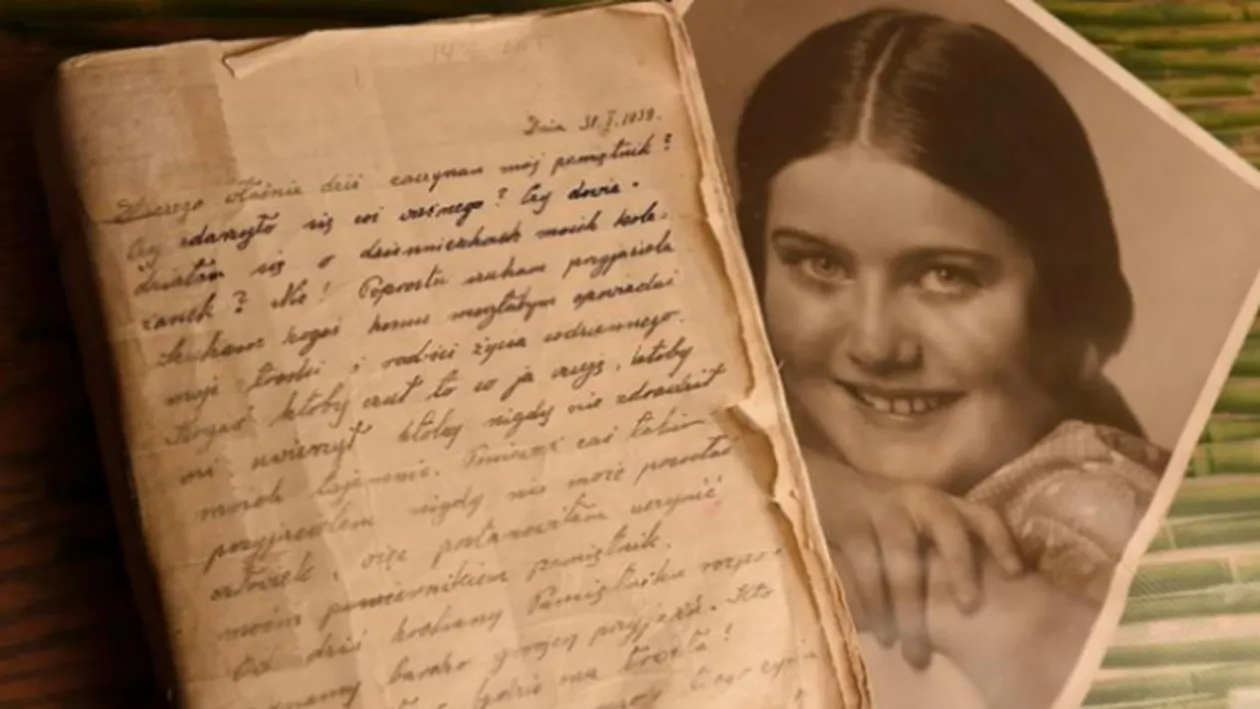 Dnia 31.I.1939.
Dlaczego właśnie dziś zaczynam mój pamiętnik?
Czy zdarzyło się coś ważnego? Czy dowie-
działam się o dzienniczkach moich kole-
żanek? Nie! Poprostu szukam przyjaciela
Szukam kogoś komu mogłabym opowiadać
moje troski i radości życia codziennego.
Kogoś ktoby czuł to co ja czuję, ktoby
mi uwierzył ktoby nigdy nie zdradził
moich tajemnic. Ponieważ takim
przyjacielem nigdy nie może pozostać
człowiek, więc postanowiłam uczynić
moim powiernikiem pamiętnik.
Od dziś kochany Pamiętniku rozpo-
bardzo gorącej przyjaźń. Kto
będzie ona trwała!